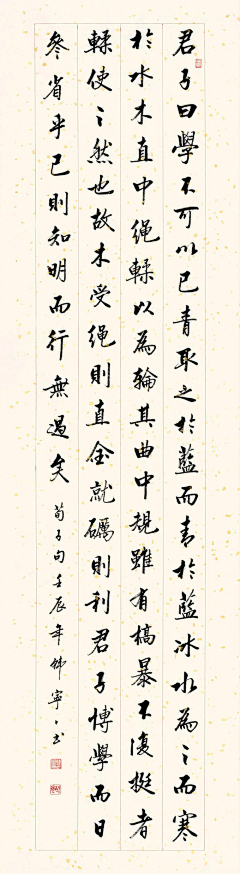 君子曰學不可以已青取之於藍而青於藍冰水為〻而寒
於水木直中繩輮以為輪其曲中規雖有槁暴不復挺者
輮使〻然也故木受繩則直金就礪則利君子博學而日
參省乎己則知明而行無過矣
荀子句壬辰年韓寧〻書